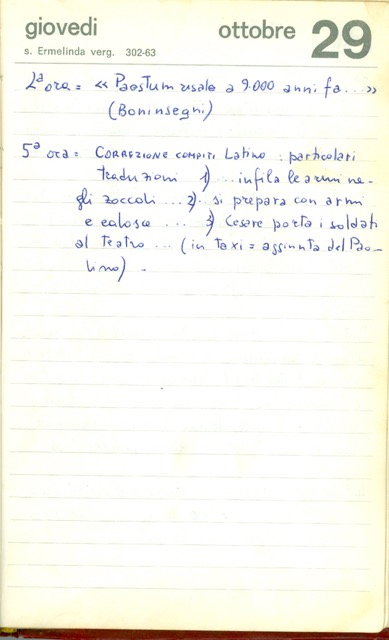 giovedi ottobre 29
s. Ermelinda verg. 302-63
2ª ora = « Paestum risale a 9.000 anni fa... »
(Boninsegni)
5ª ora = CORREZIONE COMPITI LATINO : particolari
traduzioni 1) ... infila le armi ne-
gli zoccoli ... 2) .. si prepara con armi
e calosce ... 3) Cesare porta i soldati
al teatro ... (in taxi = aggiunta del Pao-
lino) .